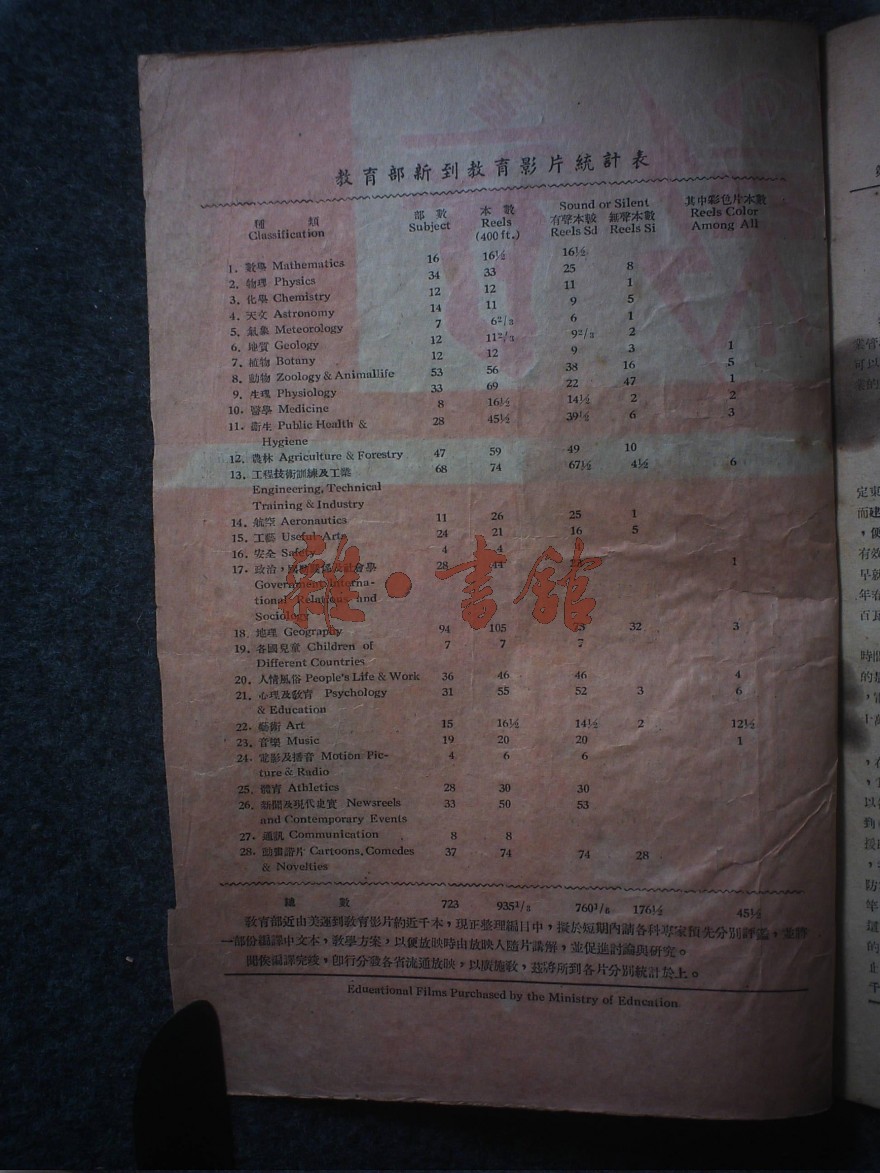 教育部新到教育影片統計表
種類 部數 本數 Sound or Silent 其中彩色片本數
Classification Subject Reels 有聲本數 無聲本數 Reels Color
(400 ft.) Reels Sd Reels Si Among All
1. 數學 Mathematics 16 16½ 16½
2. 物理 Physics 34 33 25 8
3. 化學 Chemistry 12 12 11 1
4. 天文 Astronomy 14 11 9 5
5. 氣象 Meteorology 7 6²/₃ 6 1
6. 地質 Geology 12 11²/₃ 9²/₃ 2
7. 植物 Botany 12 12 9 3 1
8. 動物 Zoology & Animallife 53 56 38 16 5
9. 生理 Physiology 33 69 22 47 1
10. 醫學 Medicine 8 16½ 14½ 2 2
11. 衞生 Public Health & 28 45½ 39½ 6 3
Hygiene
12. 農林 Agriculture & Forestry 47 59 49 10
13. 工程技術訓練及工業 68 74 67½ 4½ 6
Engineering, Technical
Training & Industry
14. 航空 Aeronautics 11 26 25 1
15. 工藝 Useful Arts 24 21 16 5
16. 安全 Safety 4 4
17. 政治,國際關係及社會學 28 44 1
Government, Interna-
tional Relations and
Sociology
18. 地理 Geography 94 105 32 3
19. 各國兒童 Children of 7 7 7
Different Countries
20. 人情風俗 People's Life & Work 36 46 46 4
21. 心理及敎育 Psychology 31 55 52 3 6
& Education
22. 藝術 Art 15 16½ 14½ 2 12½
23. 音樂 Music 19 20 20 1
24. 電影及播音 Motion Pic- 4 6 6
ture & Radio
25. 體育 Athletics 28 30 30
26. 新聞及現代史實 Newsreels 33 50 53
and Contemporary Events
27. 通訊 Communication 8 8
28. 動畫諧片 Cartoons, Comedes 37 74 74 28
& Novelties
總數 723 935¹/₃ 760¹/₆ 176½ 45½
敎育部近由美運到敎育影片約近千本,現正整理編目中,擬於短期內請各科專家預先分別評鑑,並將
一部份編譯中文本,敎學方案,以便放映時由放映人隨片講解,並促進討論與研究。
聞俟編譯完竣,卽行分發各省流通放映,以廣施敎,茲將所到各片分別統計於上。
Educational Films Purchased by the Ministry of Education
雜·書館